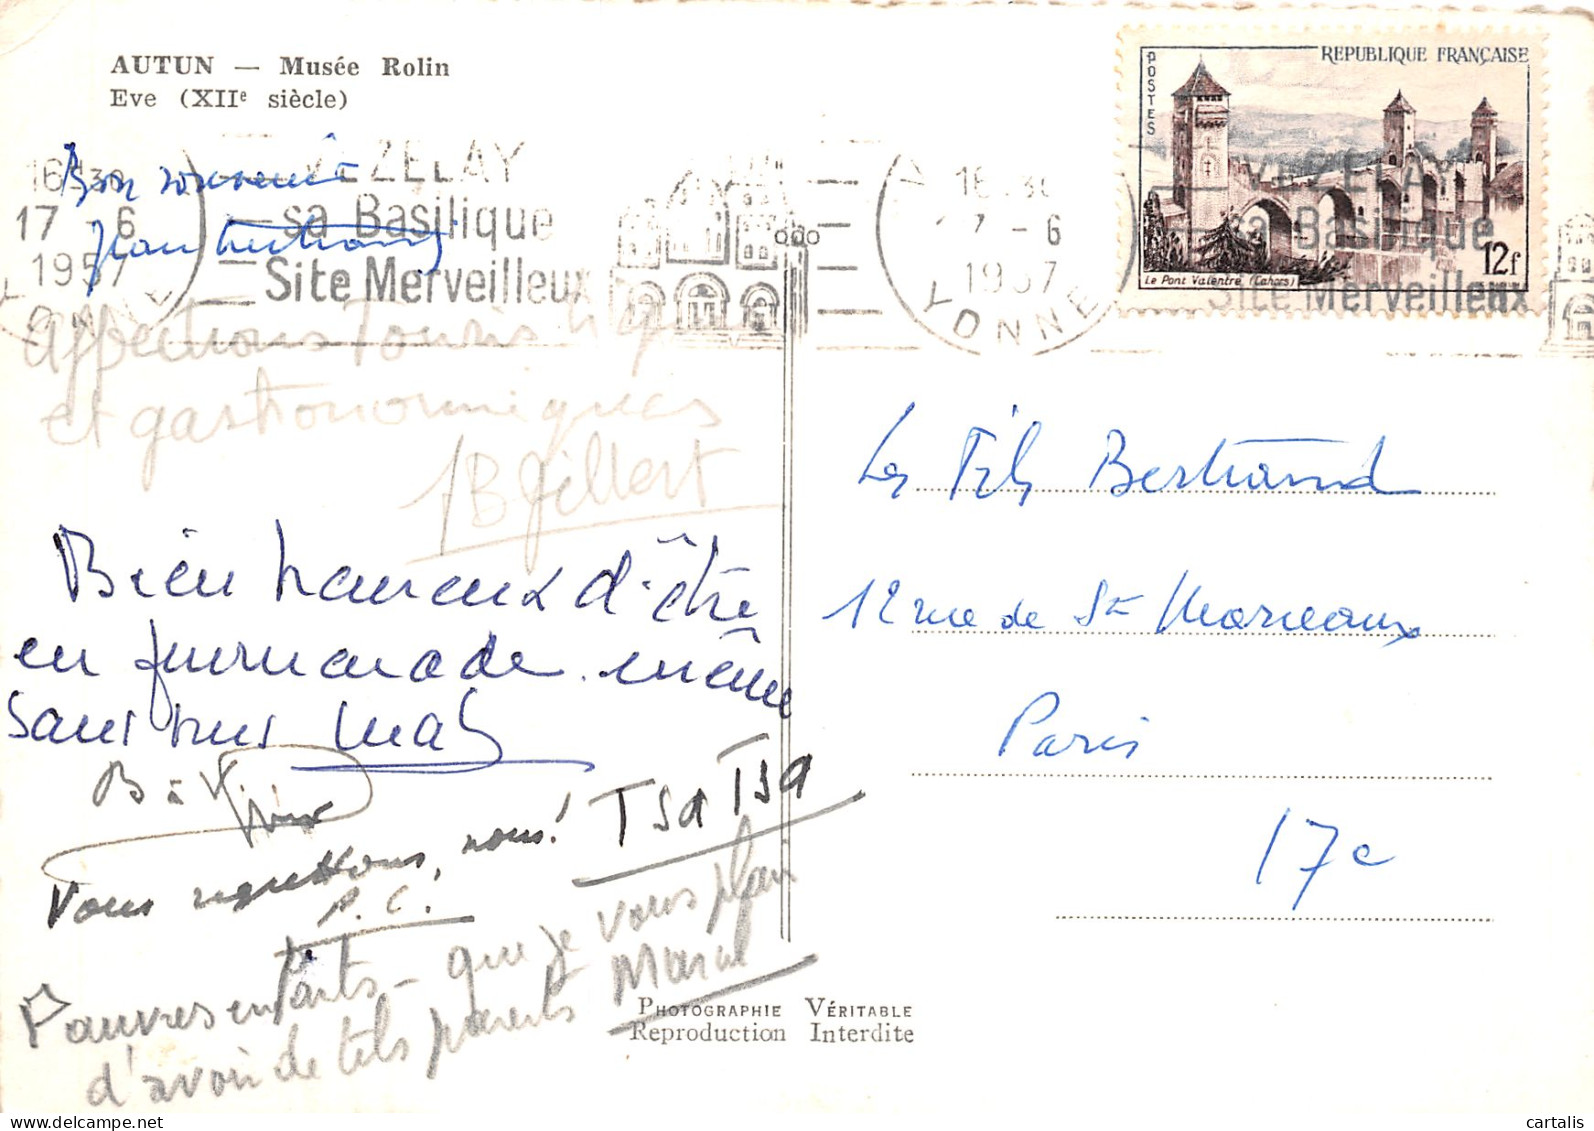 AUTUN — Musée Rolin
Eve (XIIe siècle)
REPUBLIQUE FRANÇAISE
POSTES
12f
Le Pont Valentré (Cahors)
16H30
17 - 6
1957
YONNE
VEZELAY
sa Basilique
Site Merveilleux
16H30
17 - 6
1957
YONNE
VEZELAY
sa Basilique
Site Merveilleux
Bon souvenir
Jean
affections Touristiques
et gastronomiques
JB Gillert
Bien heureux d'être
en
sans
B à V
Vous regrettons, nous! Tsa Tsa
P. C.
Pauvres enfants - que je vous plains
d'avoir de tels parents Marcel
Les Fils Bertrand
12 rue de St Marceaux
Paris
17e
PHOTOGRAPHIE VÉRITABLE
Reproduction Interdite
delcampe.net
cartalis